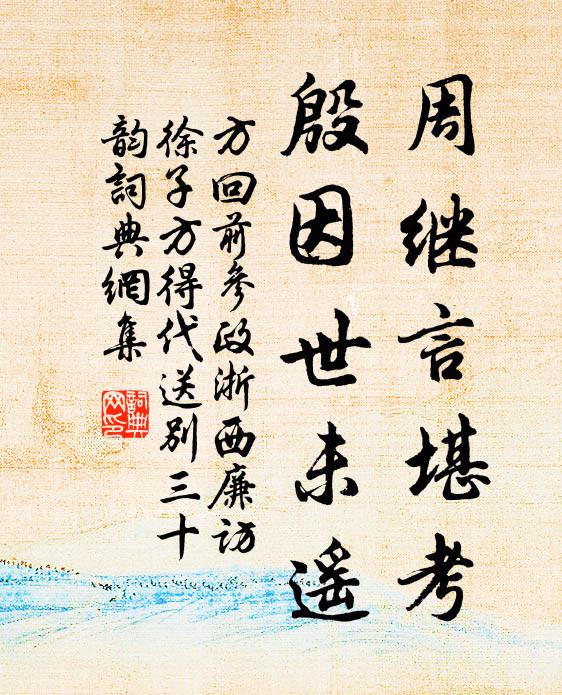 周继言堪考
殷因世未遥
方回前參政浙西廉访
徐子方得代送别三十
韵詞典網集
詞典网印